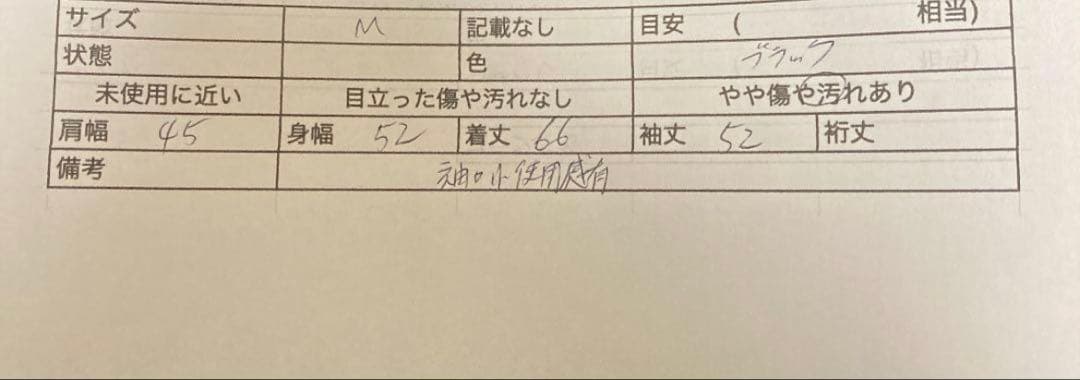 サイズ M 記載なし 目安 ( 相当)
状態 色 ブラック
未使用に近い 目立った傷や汚れなし やや傷や汚れあり
肩幅 45 身幅 52 着丈 66 袖丈 52 裄丈
備考 袖口小使用感有